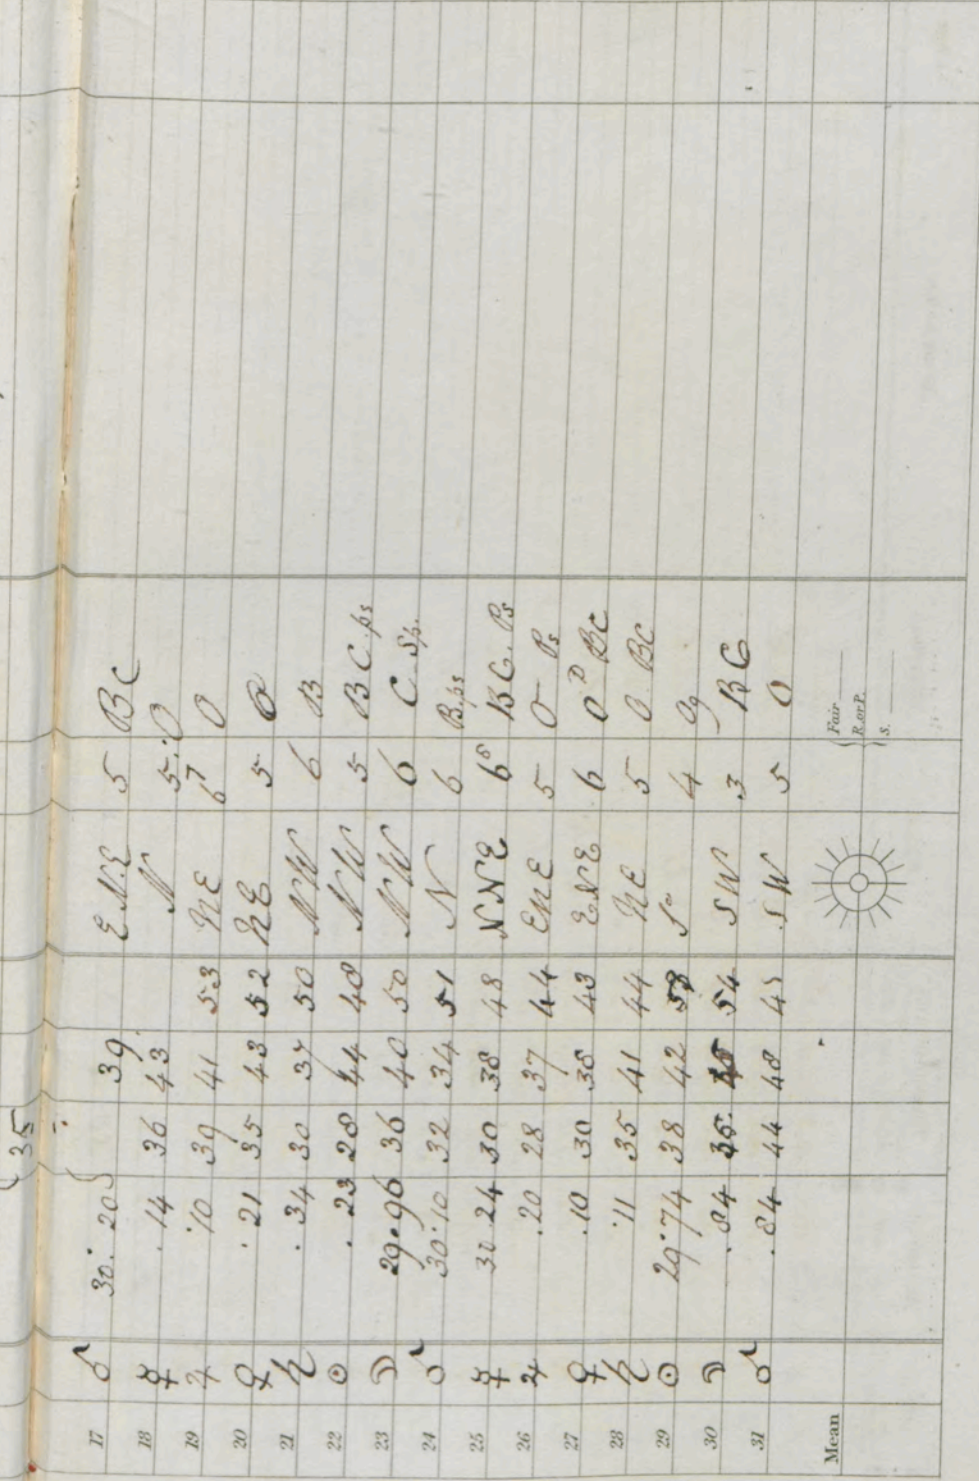 35
17 ♂ 30. 20 39 E.N.E 5 BC
18 ☿ .14 36 43 N 5 : O
19 ♃ .10 39 41 53 NE 6 7 O
20 ♀ .21 35 43 52 NE 5 O
21 ♄ .34 30 37 50 NW 6 B
22 ☉ .23 28 44 48 NW 5 BC ps
23 ☽ 29.96 36 40 50 NW 6 C Sp.
24 ♂ 30.10 32 34 51 N 6 B.ps
25 ☿ 30 24 30 38 48 NNE 6 BC. Ps
26 ♃ .20 28 37 44 ENE 5 O Ps
27 ♀ .10 30 38 43 ENE 6 O P BC
28 ♄ .11 35 41 44 NE 5 O. BC
29 ☉ 29.74 38 42 4 Og
30 ☽ .84 54 SW 3 BC
31 ♂ .84 44 48 45 SW 5 O
Mean
Fair
R. or P.
S.